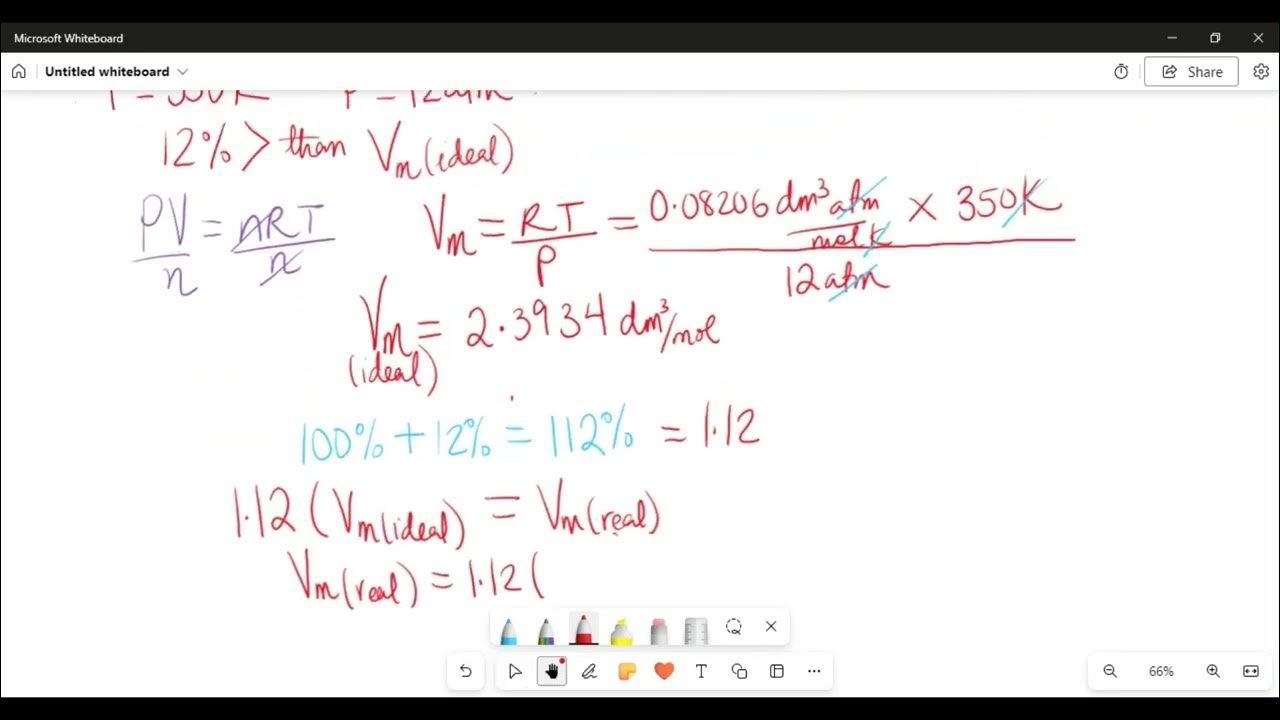 Microsoft Whiteboard
Untitled whiteboard
Share
12% > than Vm(ideal)
PV/n = nRT/n
Vm = RT/P = 0.08206 dm³ atm/mol K × 350K / 12 atm
Vm (ideal) = 2.3934 dm³/mol
100% + 12% = 112% = 1.12
1.12 (Vm(ideal) = Vm(real)
Vm(real) = 1.12 (
T
66%